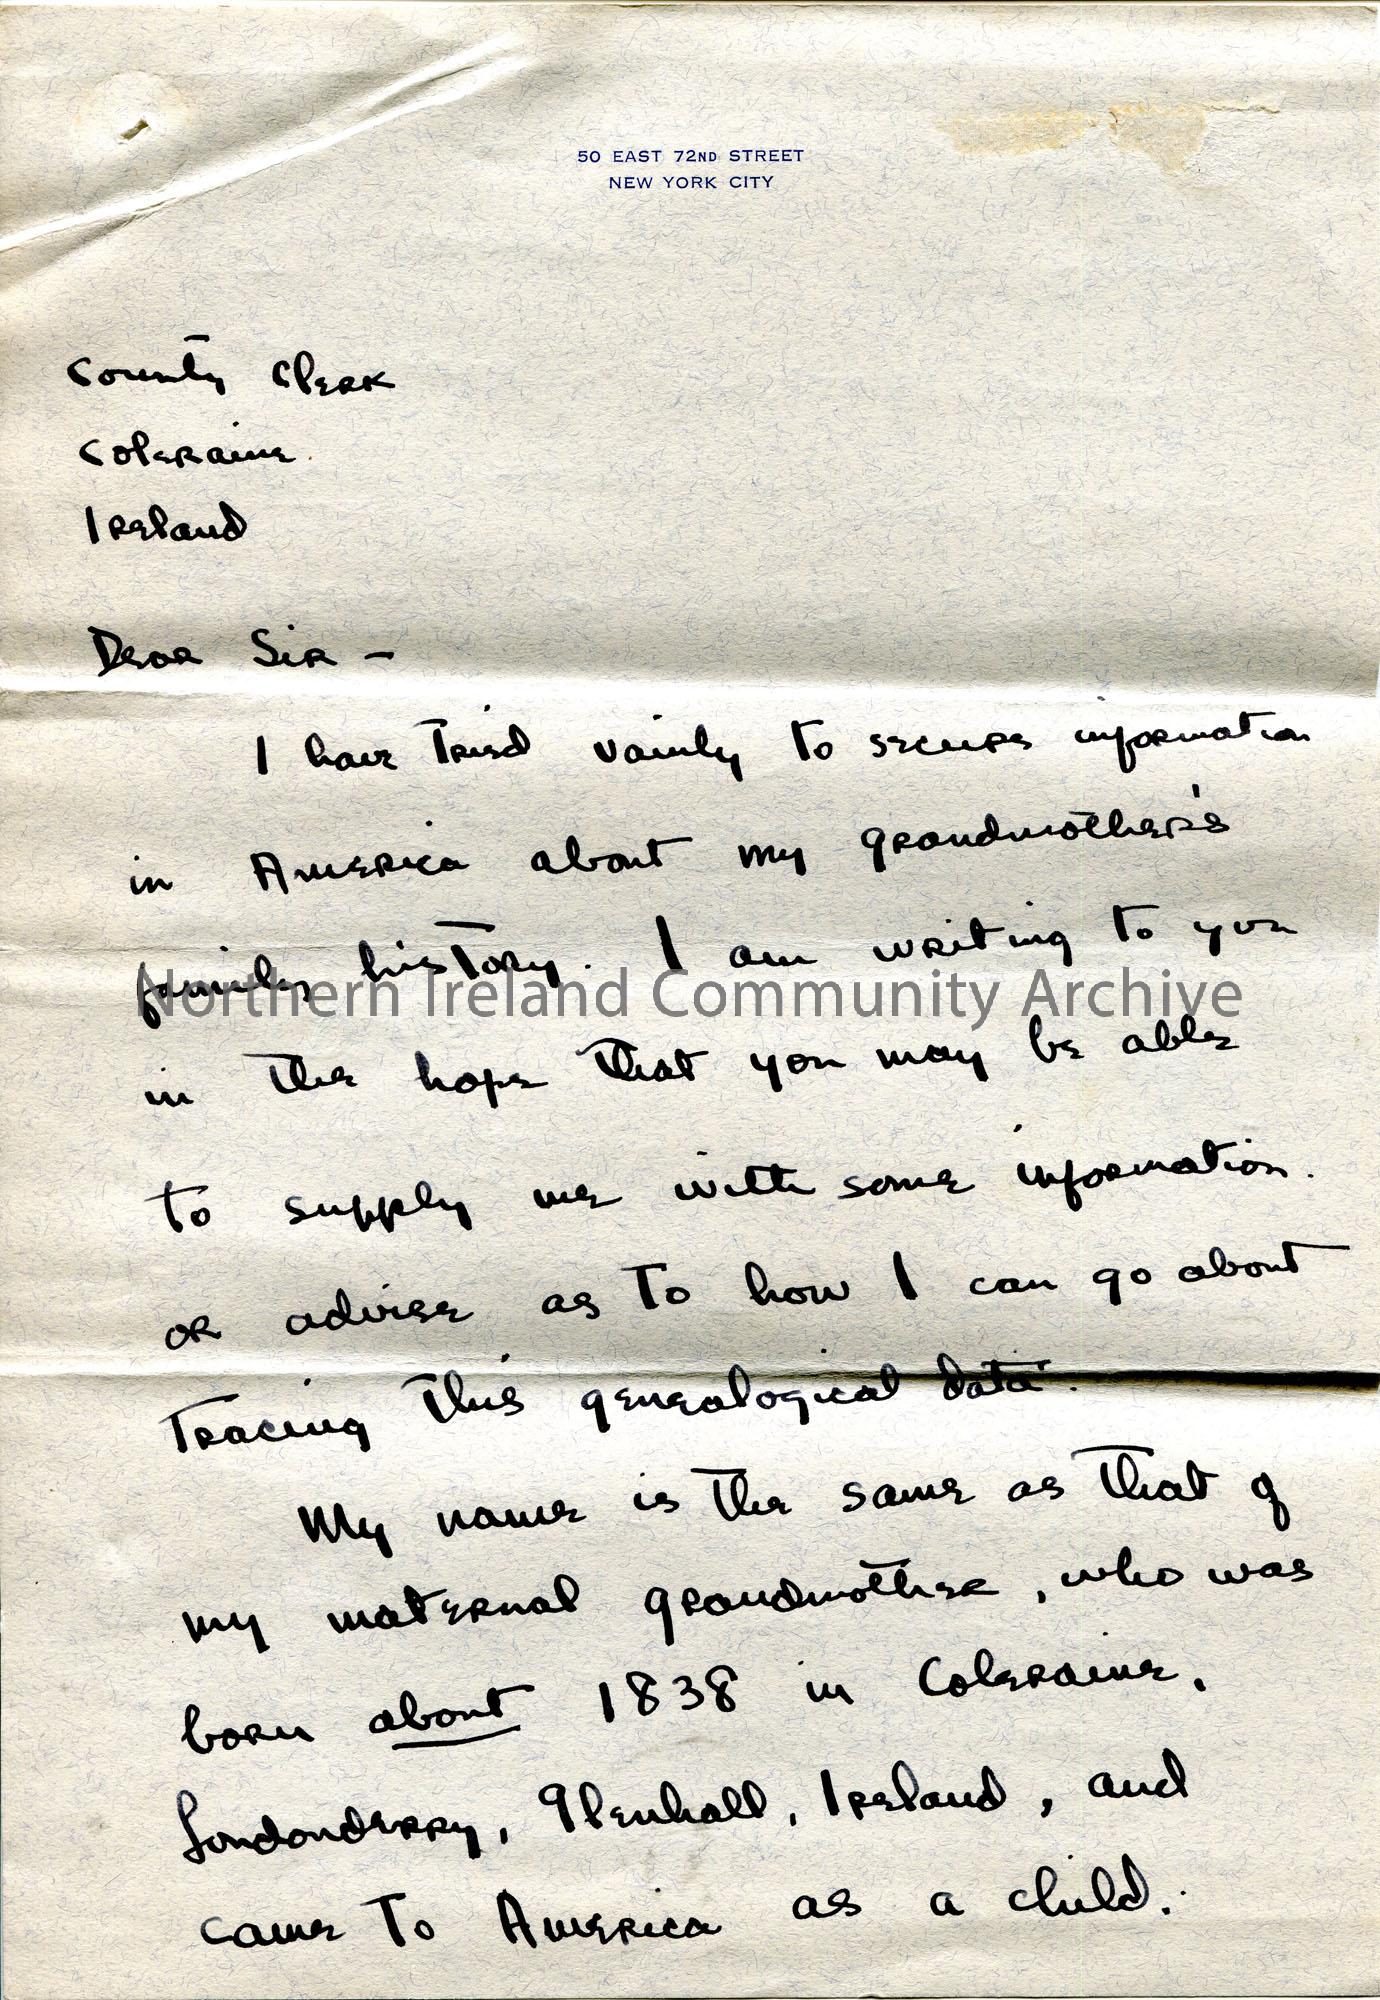 50 EAST 72ND STREET
NEW YORK CITY
County Clerk
Coleraine
Ireland
Dear Sir -
I have tried vainly to secure information
in America about my grandmother's
family history. I am writing to you
Northern Ireland Community Archive
in the hope that you may be able
to supply me with some information
or advise as to how I can go about
tracing this genealogical data.
My name is the same as that of
my maternal grandmother, who was
born about 1838 in Coleraine,
Londonderry, Glenhall, Ireland, and
came to America as a child.